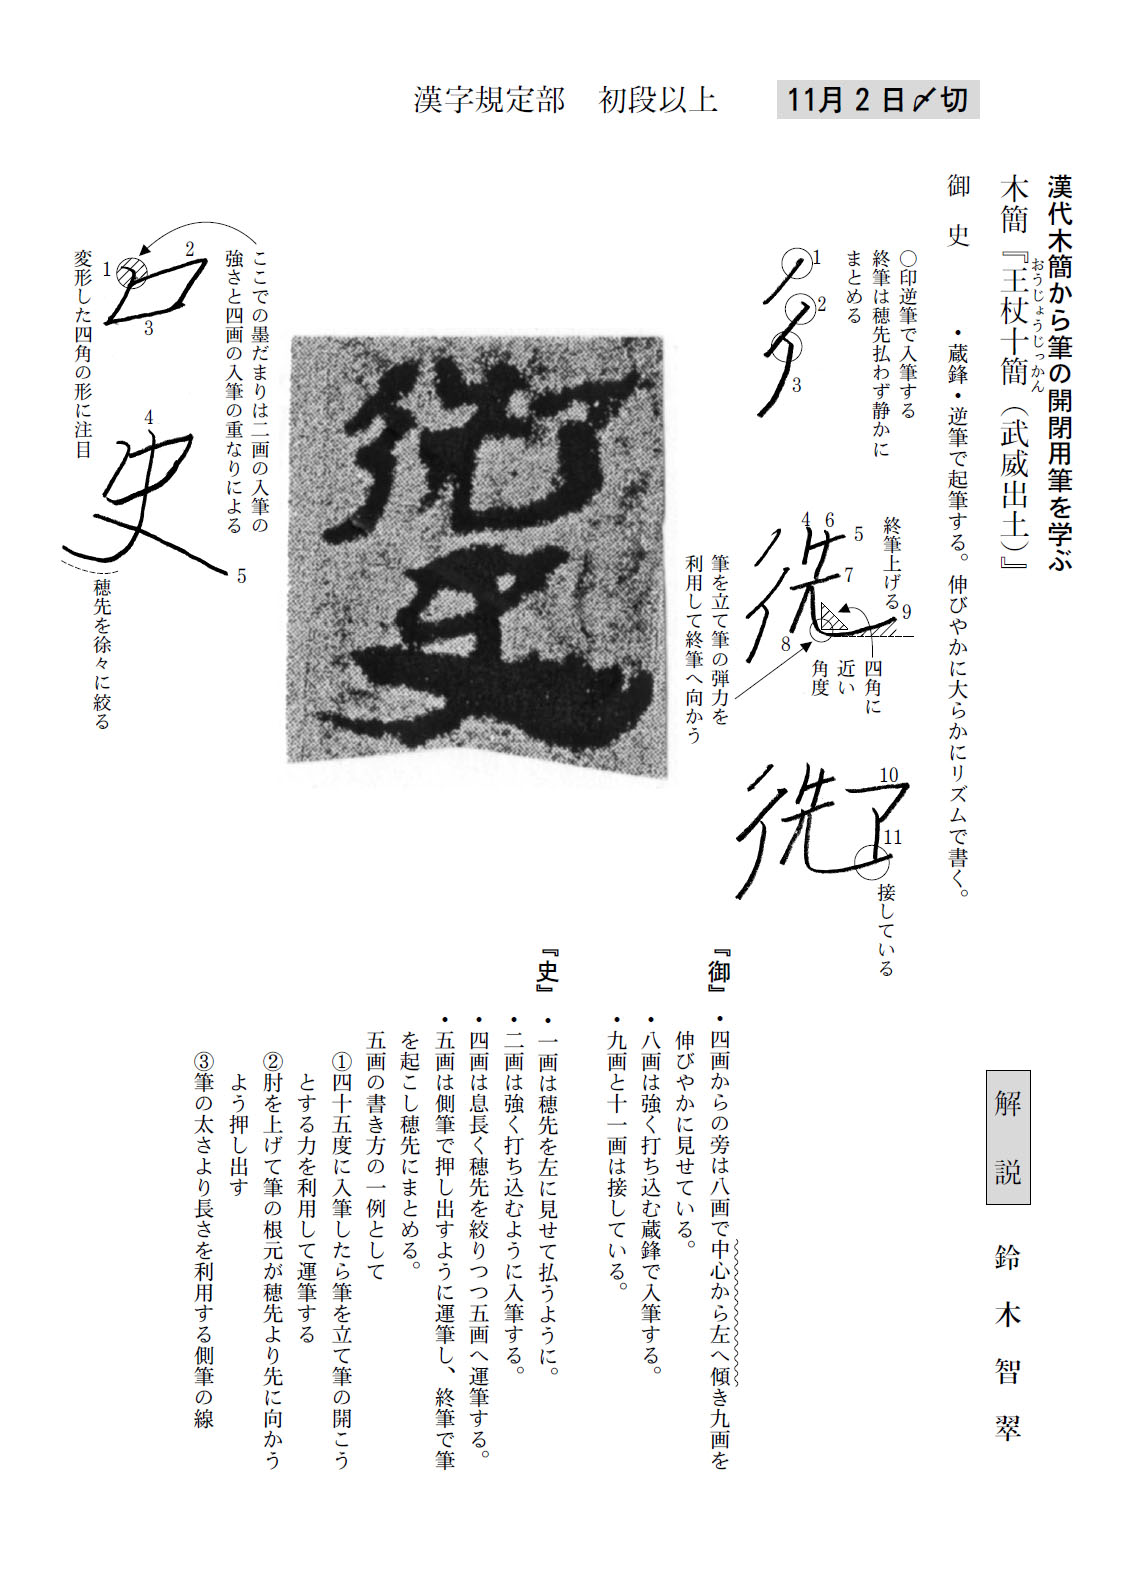 漢字規定部　初段以上
11月2日〆切
漢代木簡から筆の開閉用筆を学ぶ
木簡『王杖十簡（武威出土）』
おうじょうじっかん
御史
・蔵鋒・逆筆で起筆する。伸びやかに大らかにリズムで書く。
〇印逆筆で入筆する
終筆は穂先払わず静かに
まとめる
1
2
3
終筆上げる
4
6
5
7
8
9
四角に
近い
角度
筆を立て筆の弾力を
利用して終筆へ向かう
10
11
接している
御史
ここでの墨だまりは二画の入筆の
強さと四画の入筆の重なりによる
1
2
3
変形した四角の形に注目
4
5
史
穂先を徐々に絞る
解説
鈴木智翠
『御』・四画からの旁は八画で中心から左へ傾き九画を
伸びやかに見せている。
・八画は強く打ち込む蔵鋒で入筆する。
・九画と十一画は接している。
『史』・一画は穂先を左に見せて払うように。
・二画は強く打ち込むように入筆する。
・四画は息長く穂先を絞りつつ五画へ運筆する。
・五画は側筆で押し出すように運筆し、終筆で筆
を起こし穂先にまとめる。
五画の書き方の一例として
①四十五度に入筆したら筆を立て筆の開こう
とする力を利用して運筆する
②肘を上げて筆の根元が穂先より先に向かう
よう押し出す
③筆の太さより長さを利用する側筆の線